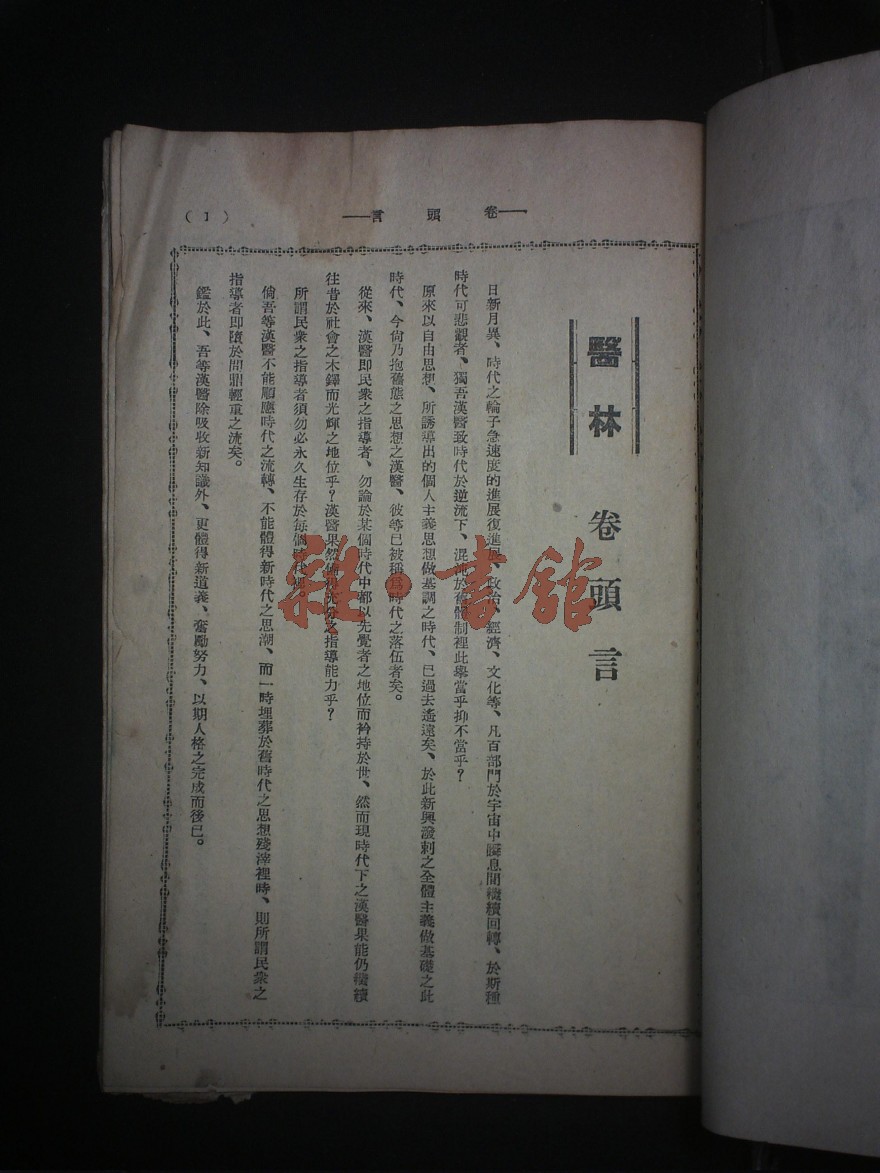 (1)
卷頭言
醫林
卷頭言
日新月異、時代之輪子急速度的進展復進展、政治、經濟、文化等、凡百部門於宇宙中瞬息間繼續回轉、於斯種
時代可悲觀者、獨吾漢醫致時代於逆流下、混沌於舊體制裡此舉當乎抑不當乎？
原來以自由思想、所誘導出的個人主義思想做基調之時代、已過去遙遠矣、於此新興潑剌之全體主義做基礎之此
時代、今尙乃抱舊態之思想之漢醫、彼等已被稱爲時代之落伍者矣。
從來、漢醫即民衆之指導者、勿論於某個時代中都以先覺者之地位而衿持於世、然而現時代下之漢醫果能仍繼續
往昔於社會之木鐸而光輝之地位乎？漢醫果然之指導能力乎？
所謂民衆之指導者須勿必永久生存於每個時代裡。
倘吾等漢醫不能順應時代之流轉、不能體得新時代之思潮、而一時埋葬於舊時代之思想殘滓裡時、則所謂民衆之
指導者即墮於問鼎輕重之流矣。
鑑於此、吾等漢醫除吸收新知識外、更體得新道義、奮勵努力、以期人格之完成而後已。
雜·書館